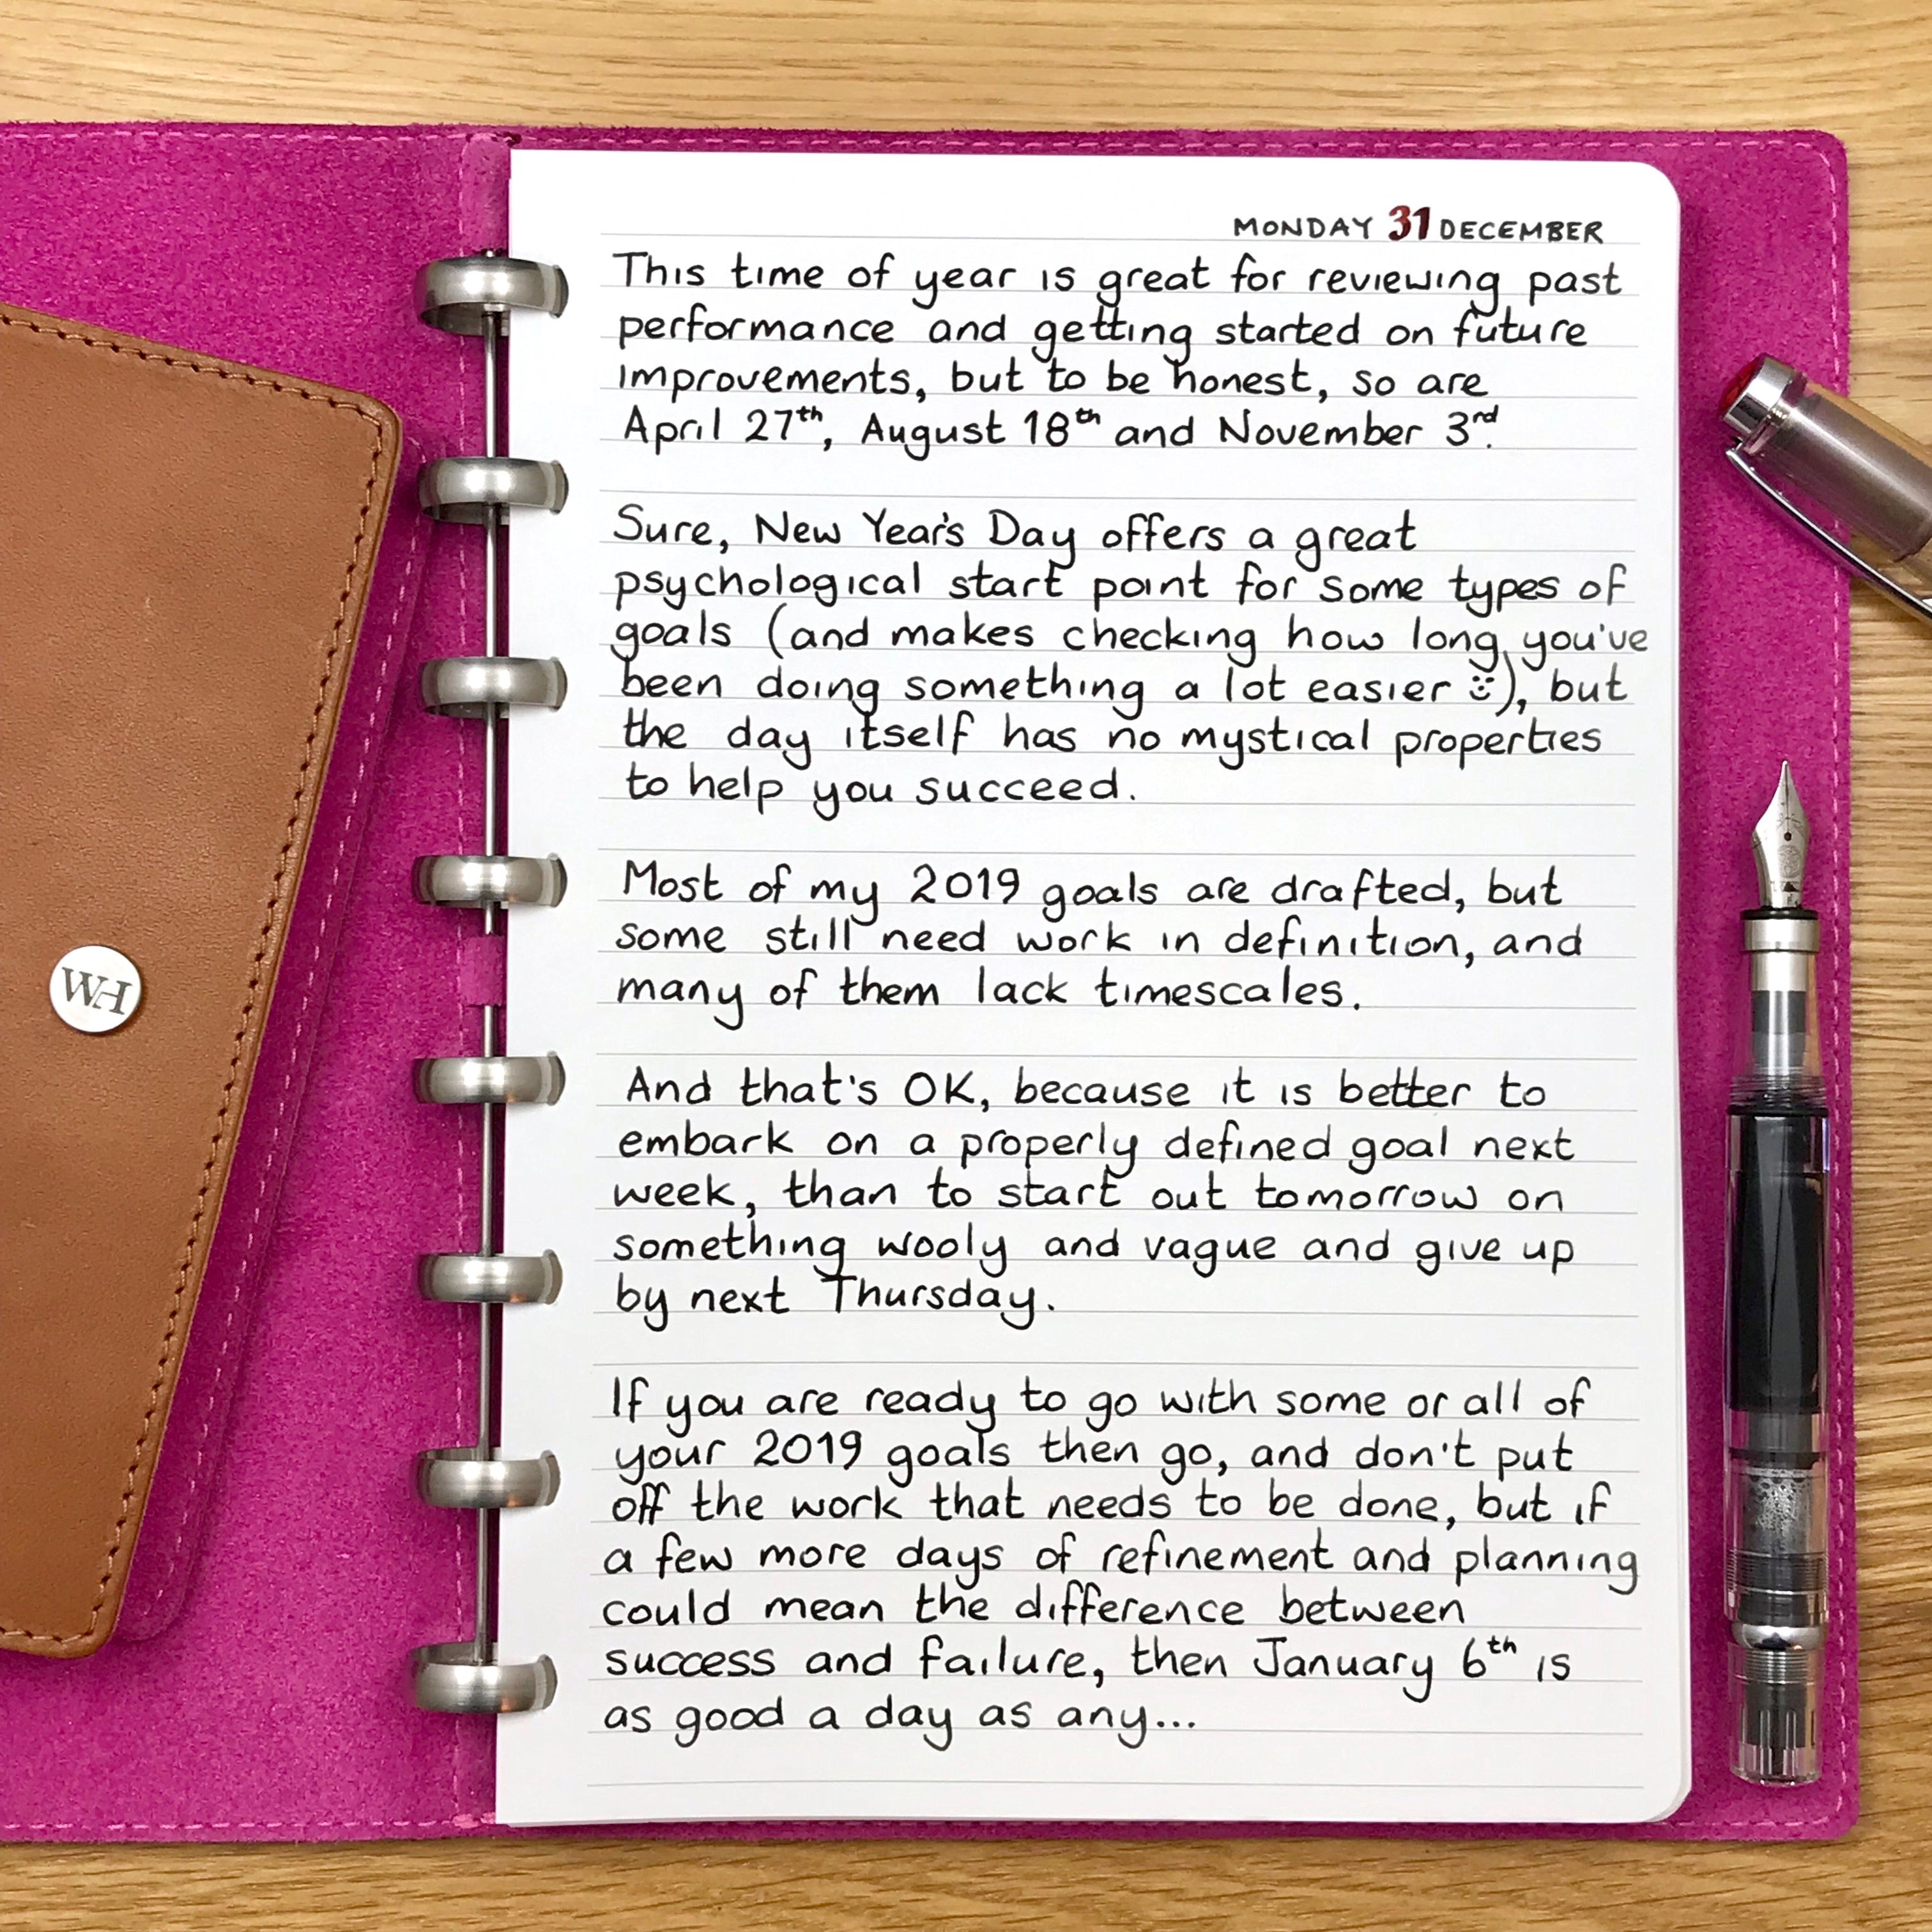 MONDAY 31 DECEMBER
This time of year is great for reviewing past
performance and getting started on future
improvements, but to be honest, so are
April 27th, August 18th and November 3rd.
Sure, New Year's Day offers a great
psychological start point for some types of
goals (and makes checking how long you've
been doing something a lot easier :)), but
the day itself has no mystical properties
to help you succeed.
Most of my 2019 goals are drafted, but
some still need work in definition, and
many of them lack timescales.
And that's OK, because it is better to
embark on a properly defined goal next
week, than to start out tomorrow on
something wooly and vague and give up
by next Thursday.
If you are ready to go with some or all of
your 2019 goals then go, and don't put
off the work that needs to be done, but if
a few more days of refinement and planning
could mean the difference between
success and failure, then January 6th is
as good a day as any...
WH